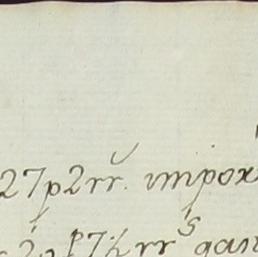 27p2rr. impor
2p7½rrs gan